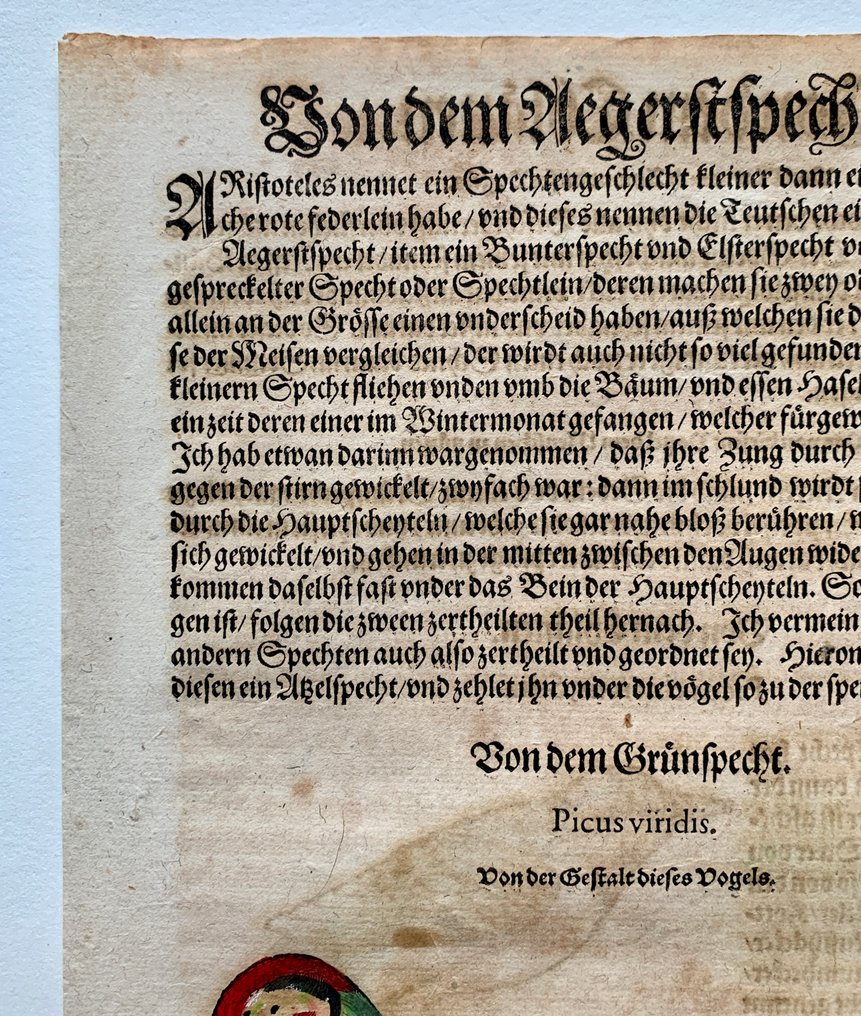 Von dem Aegerstspech
ARistoteles nennet ein Spechtengeschlecht kleiner dann ei
che rote federlein habe / vnd dieses nennen die Teutschen ei
Aegerstspecht / item ein Bunterspecht vnd Elsterspecht v
gespreckelter Specht oder Spechtlein / deren machen sie zwey o
allein an der Grösse einen vnderscheid haben / auß welchen sie d
se der Meisen vergleichen / der wirdt auch nicht so viel gefunden
kleinern Specht fliehen vnden vmb die Bäum / vnd essen Hasel
ein zeit deren einer im Wintermonat gefangen / welcher fürgew
Ich hab etwan darinn wargenommen / daß jhre Zung durch
gegen der stirn gewickelt / zwyfach war : dann im schlund wirdt
durch die Hauptscheyteln / welche sie gar nahe bloß berühren / w
sich gewickelt / vnd gehen in der mitten zwischen den Augen wide
kommen daselbst fast vnder das Bein der Hauptscheyteln. So
gen ist / folgen die zween zertheilten theil hernach. Ich vermein
andern Spechten auch also zertheilt vnd geordnet sey. Hieron
diesen ein Atzelspecht / vnd zehlet jhn vnder die vögel so zu der spe
Von dem Grünspecht.
Picus viridis.
Von der Gestalt dieses Vogels.